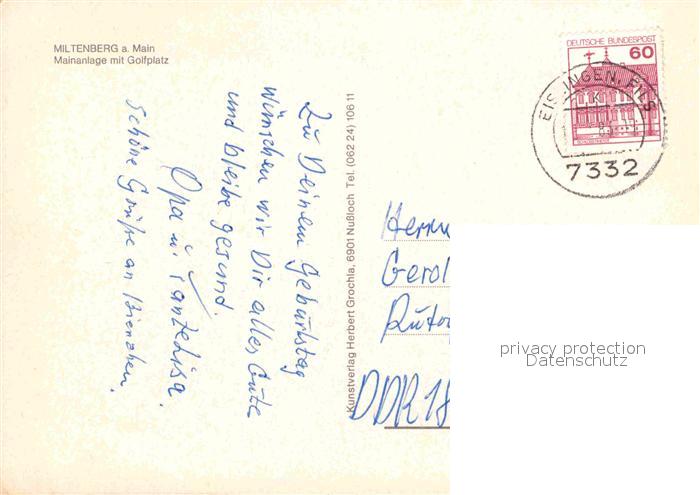 MILTENBERG a. Main
Mainanlage mit Golfplatz
DEUTSCHE BUNDESPOST
60
EISLINGEN, FILS
7332
Zu Deinem Geburtstag
wünschen wir Dir alles Gute
und bleibe gesund.
Opa u. Tanzelisa.
Schöne Grüße an Bienchen.
Kunstverlag Herbert Grochla, 6901 Nußloch Tel. (062 24) 106 11
Herrn
Gerol
DDR 18
privacy protection
Datenschutz